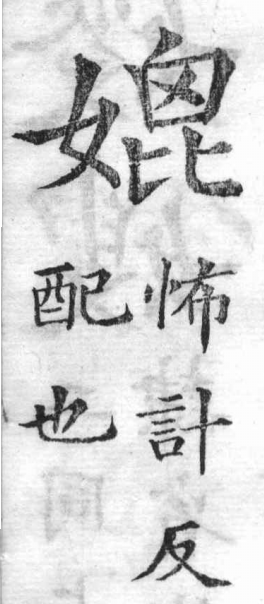 媲
怖計反
配也